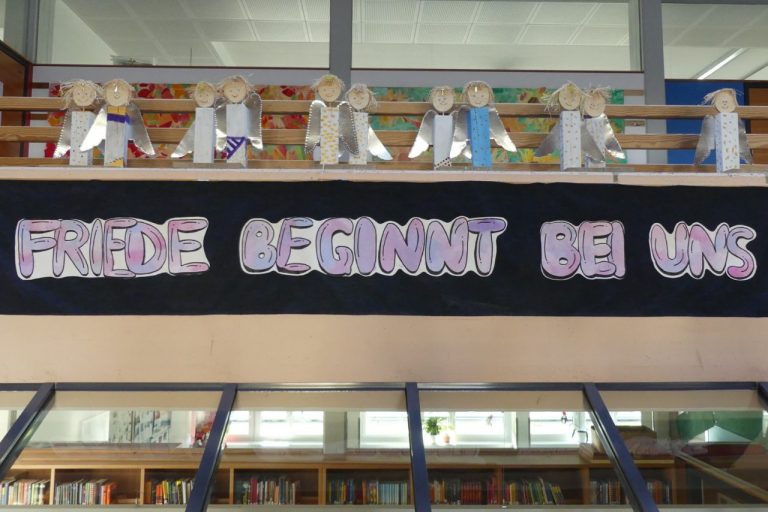 FRIEDE BEGINNT BEI UNS